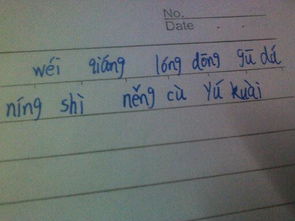 No.
Date
wéi qiáng lóng dōng gū dá
níng shì něng cù yú kuài